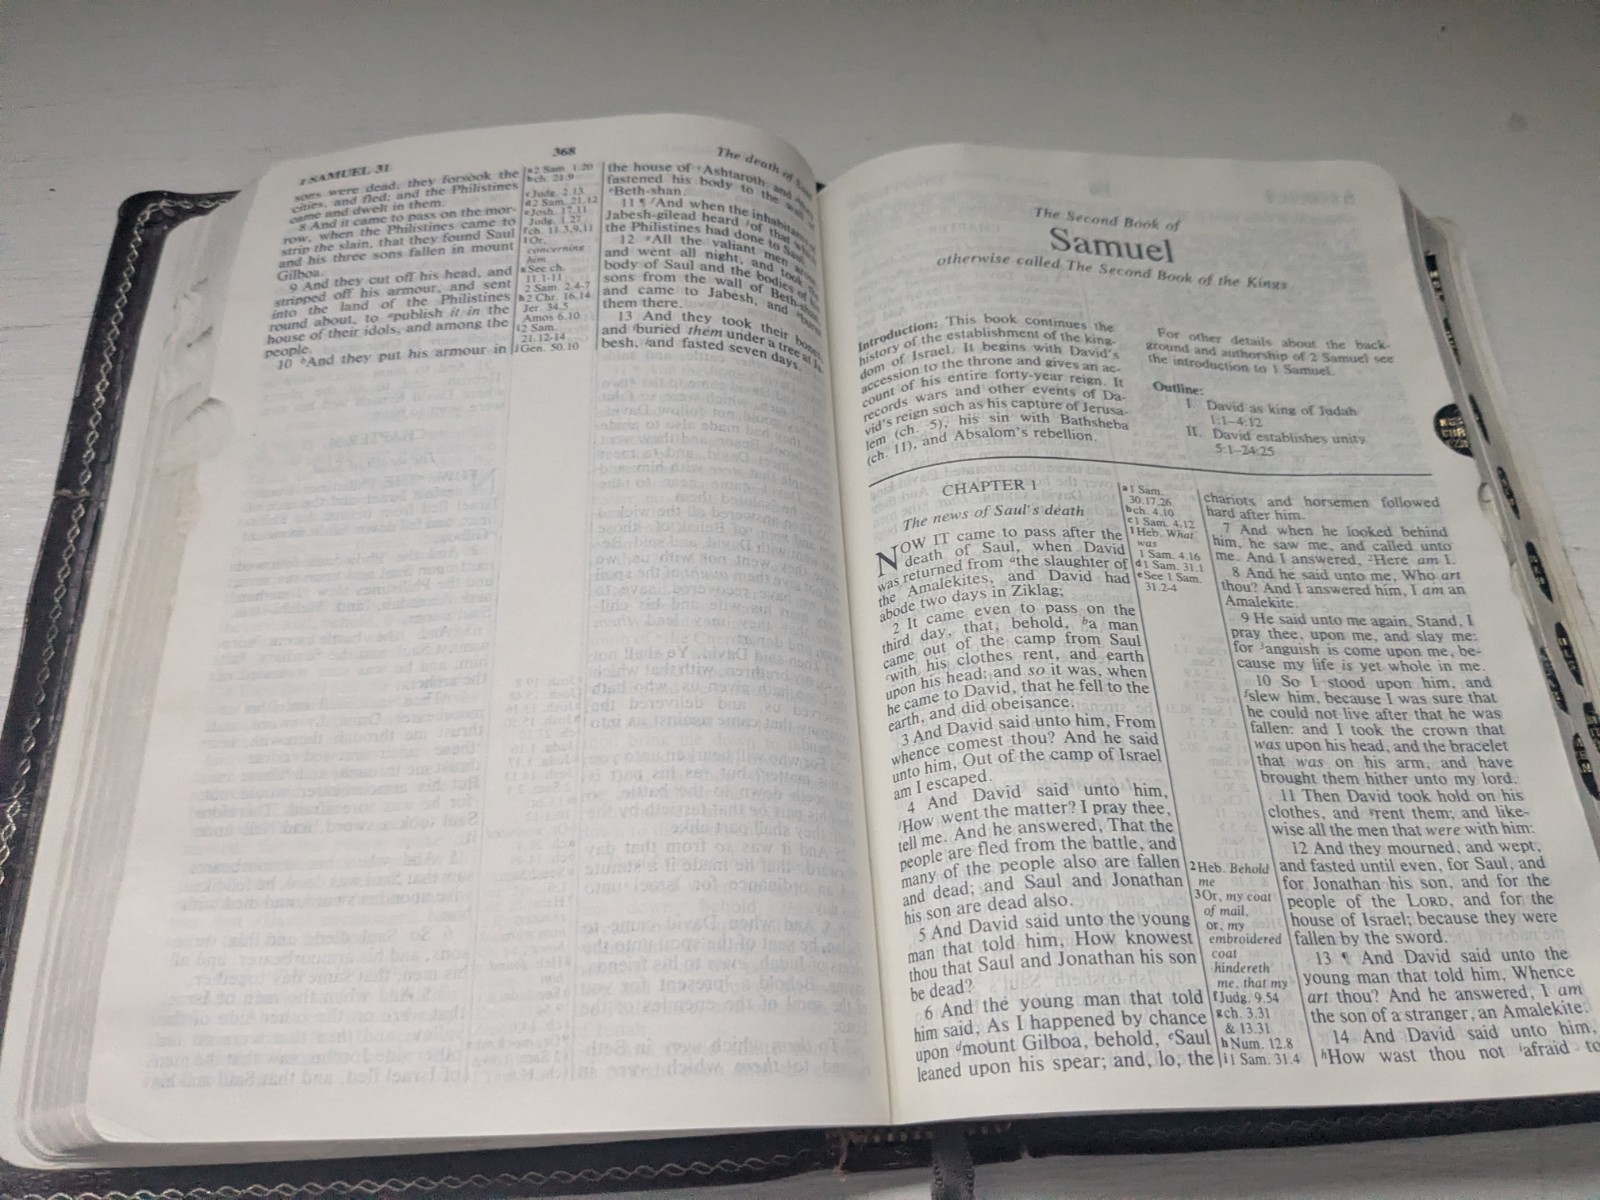 1 SAMUEL 31
368
The death of Saul
sons were dead, they forsook the
cities, and fled; and the Philistines
came and dwelt in them.
8 And it came to pass on the mor-
row, when the Philistines came to
strip the slain, that they found Saul
and his three sons fallen in mount
Gilboa.
9 And they cut off his head, and
stripped off his armour, and sent
into the land of the Philistines
round about, to publish it in the
house of their idols, and among the
people.
10 hAnd they put his armour in
a2 Sam. 1.20
bch. 21.9
cJudg. 2.13
d2 Sam. 21.12
eJosh. 17.11
Judg. 1.27
fch. 11.3,9,11
1Or,
concerning
him
gSee ch.
11.1-11
2 Sam. 2.4-7
h2 Chr. 16.14
Jer. 34.5
Amos 6.10
i2 Sam.
21.12-14
jGen. 50.10
the house of cAshtaroth: and they
fastened his body to the wall
eBeth-shan.
11 ¶ fAnd when the inhabitants
Jabesh-gilead heard 1of that which
the Philistines had done to Saul
12 gAll the valiant men arose
and went all night, and took the
body of Saul and the bodies of
sons from the wall of Beth-shan
and came to Jabesh, and burnt
them there.
13 And they took their bones,
and iburied them under a tree at
besh, jand fasted seven days.
The Second Book of
Samuel
otherwise called The Second Book of the Kings
Introduction: This book continues the
history of the establishment of the king-
dom of Israel. It begins with David's
accession to the throne and gives an ac-
count of his entire forty-year reign. It
records wars and other events of Da-
vid's reign such as his capture of Jerusa-
lem (ch. 5), his sin with Bathsheba
(ch. 11), and Absalom's rebellion.
For other details about the back-
ground and authorship of 2 Samuel see
the introduction to 1 Samuel.
Outline:
I. David as king of Judah
1:1–4:12
II. David establishes unity
5:1–24:25
CHAPTER 1
The news of Saul's death
NOW IT came to pass after the
death of Saul, when David
was returned from athe slaughter of
the Amalekites, and David had
abode two days in Ziklag;
2 It came even to pass on the
third day, that, behold, ba man
came out of the camp from Saul
cwith his clothes rent, and earth
upon his head: and so it was, when
he came to David, that he fell to the
earth, and did obeisance.
3 And David said unto him, From
whence comest thou? And he said
unto him, Out of the camp of Israel
am I escaped.
4 And David said unto him,
1How went the matter? I pray thee,
tell me. And he answered, That the
people are fled from the battle, and
many of the people also are fallen
and dead; and Saul and Jonathan
his son are dead also.
5 And David said unto the young
man that told him, How knowest
thou that Saul and Jonathan his son
be dead?
6 And the young man that told
him said, As I happened by chance
upon dmount Gilboa, behold, eSaul
leaned upon his spear; and, lo, the
a1 Sam.
30.17,26
bch. 4.10
c1 Sam. 4.12
1Heb. What
was
1 Sam. 4.16
d1 Sam. 31.1
eSee 1 Sam.
31.2-4
2Heb. Behold
me
3Or, my coat
of mail,
or, my
embroidered
coat
hindereth
me, that my
fJudg. 9.54
gch. 3.31
& 13.31
hNum. 12.8
i1 Sam. 31.4
chariots and horsemen followed
hard after him.
7 And when he looked behind
him, he saw me, and called unto
me. And I answered, 2Here am I.
8 And he said unto me, Who art
thou? And I answered him, I am an
Amalekite.
9 He said unto me again, Stand, I
pray thee, upon me, and slay me:
for 3anguish is come upon me, be-
cause my life is yet whole in me.
10 So I stood upon him, and
fslew him, because I was sure that
he could not live after that he was
fallen: and I took the crown that
was upon his head, and the bracelet
that was on his arm, and have
brought them hither unto my lord.
11 Then David took hold on his
clothes, and grent them; and like-
wise all the men that were with him:
12 And they mourned, and wept,
and fasted until even, for Saul, and
for Jonathan his son, and for the
people of the LORD, and for the
house of Israel; because they were
fallen by the sword.
13 ¶ And David said unto the
young man that told him, Whence
art thou? And he answered, I am
the son of a stranger, an Amalekite.
14 And David said unto him,
hHow wast thou not iafraid to